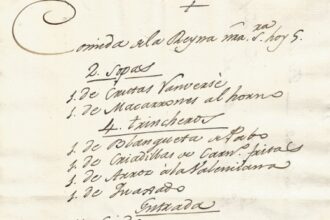 Comida de la Reyna nra. Sra. hoy 5.
2. Sopas
1. de Crutas Vanverse
1. de Macarrones al horno
4. trincheros
1. de Blanqueta de Pabo
1. de Criadillas de Carno. fritas
1. de Arroz a la Valenciana
1. de Guisado
Entrada